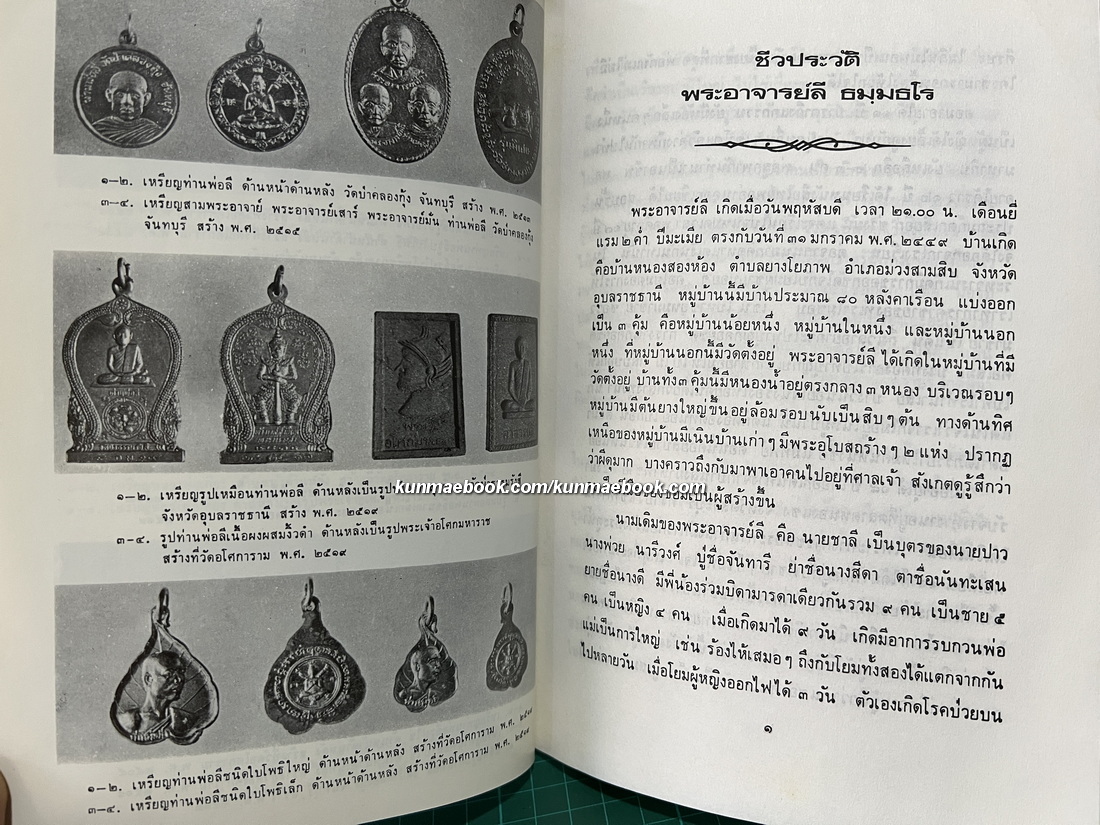 ๑–๒. เหรียญท่านพ่อลี ด้านหน้าด้านหลัง วัดป่าคลองกุ้ง จันทบุรี สร้าง พ.ศ.
๓–๔. เหรียญสามพระอาจารย์ พระอาจารย์เสาร์ พระอาจารย์มั่น ท่านพ่อลี วัดป่าคลองกุ้ง
จันทบุรี สร้าง พ.ศ. ๒๕๑๕
๑–๒. เหรียญรูปเหมือนท่านพ่อลี ด้านหลังเป็นรูป
จังหวัดอุบลราชธานี สร้าง พ.ศ. ๒๕๑๙
๓–๔. รูปท่านพ่อลีเนื้อผงผสมงิ้วดำ ด้านหลังเป็นรูปพระเจ้าอโศกมหาราช
สร้างที่วัดอโศการาม พ.ศ. ๒๕๑๙
๑–๒. เหรียญท่านพ่อลีชนิดใบโพธิใหญ่ ด้านหน้าด้านหลัง สร้างที่วัดอโศการาม พ.ศ.
๓–๔. เหรียญท่านพ่อลีชนิดใบโพธิเล็ก ด้านหน้าด้านหลัง สร้างที่วัดอโศการาม พ.ศ.
ชีวประวัติ
พระอาจารย์ลี ธมฺมธโร
พระอาจารย์ลี เกิดเมื่อวันพฤหัสบดี เวลา ๒๑.๐๐ น. เดือนยี่
แรม ๒ ค่ำ ปีมะเมีย ตรงกับวันที่ ๓๑ มกราคม พ.ศ. ๒๔๔๙ บ้านเกิด
คือบ้านหนองสองห้อง ตำบลยางโยภาพ อำเภอม่วงสามสิบ จังหวัด
อุบลราชธานี หมู่บ้านนี้มีบ้านประมาณ ๘๐ หลังคาเรือน แบ่งออก
เป็น ๓ คุ้ม คือหมู่บ้านน้อยหนึ่ง หมู่บ้านในหนึ่ง และหมู่บ้านนอก
หนึ่ง ที่หมู่บ้านนอกนี้มีวัดตั้งอยู่ พระอาจารย์ลี ได้เกิดในหมู่บ้านที่มี
วัดตั้งอยู่ บ้านทั้ง ๓ คุ้มนี้มีหนองน้ำอยู่ตรงกลาง ๓ หนอง บริเวณรอบๆ
หมู่บ้านมีต้นยางใหญ่ขึ้นอยู่ล้อมรอบนับเป็นสิบๆ ต้น ทางด้านทิศ
เหนือของหมู่บ้านมีเนินบ้านเก่าๆ มีพระอุโบสถร้างๆ ๒ แห่ง ปรากฏ
ว่าผีดุมาก บางคราวถึงกับมาพาเอาคนไปอยู่ที่ศาลเจ้า สังเกตดูรู้สึกว่า
เป็นผู้สร้างขึ้น
kunmaebook.com/kunmaebook.com
นามเดิมของพระอาจารย์ลี คือ นายชาลี เป็นบุตรของนายปาว
นางพ่วย นารีวงศ์ ปู่ชื่อจันทารี ย่าชื่อนางสีดา ตาชื่อนันทะเสน
ยายชื่อนางดี มีพี่น้องร่วมบิดามารดาเดียวกันรวม ๙ คน เป็นชาย ๕
คน เป็นหญิง ๔ คน เมื่อเกิดมาได้ ๙ วัน เกิดมีอาการรบกวนพ่อ
แม่เป็นการใหญ่ เช่น ร้องไห้เสมอๆ ถึงกับโยมทั้งสองได้แตกจากกัน
ไปหลายวัน เมื่อโยมผู้หญิงออกไฟได้ ๓ วัน ตัวเองเกิดโรคป่วยบน
๑